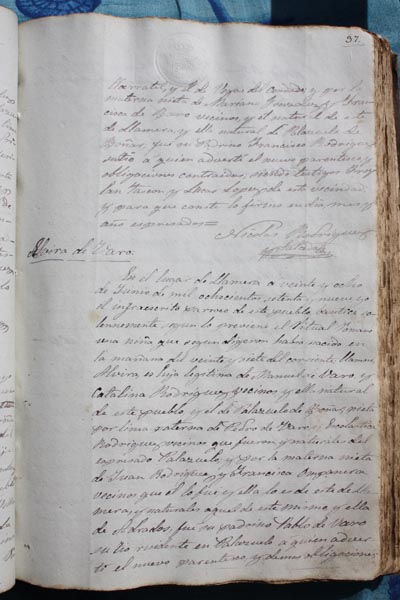 37.
Narratal, y él de Vegas del Condado y por la
materna nieto de Mariano Gonzalez y Fran-
cisca de Varo vecinos y él natural de este
de Llamera, y ella natural de Palazuelo de
Boñar, fue su Padrino Francisco Rodriguez
su tio a quien advertí el nuevo parentesco y
obligaciones contraidas; siendo testigos
y Lopez de esta vecindad
y para que conste lo firmo en dia mes y
año expresados=
Nicolas Rodriguez
Elvira de Varo.
En el lugar de Llamera a veinte y ocho
de Junio de mil ochocientos setenta y nueve yo
el infraescrito parroco de este pueblo bautice so-
lemnemente, segun lo previene el Ritual Romano
una niña que segun dijeron habia nacido en
la mañana del veinte y siete del corriente, llamose
Elvira, es hija legitima de Manuel de Varo y
Catalina Rodriguez, vecinos y ella natural
de este pueblo y él de Palazuelo de Boñar, nieta
por linea paterna de Pedro de Varo y Escolastica
Rodriguez, vecinos que fueron y naturales del
espresado Palazuelo, y por la materna nieta
de Juan Rodriguez y Francisca
vecinos que él lo fue y ella lo es de este de Lla-
mera, y naturales aquel de este mismo y ella
de Adrados, fue su padrino Pablo de Varo
su tio residente en Palazuelo a quien adver-
tí el nuevo parentesco, y demas obligaciones